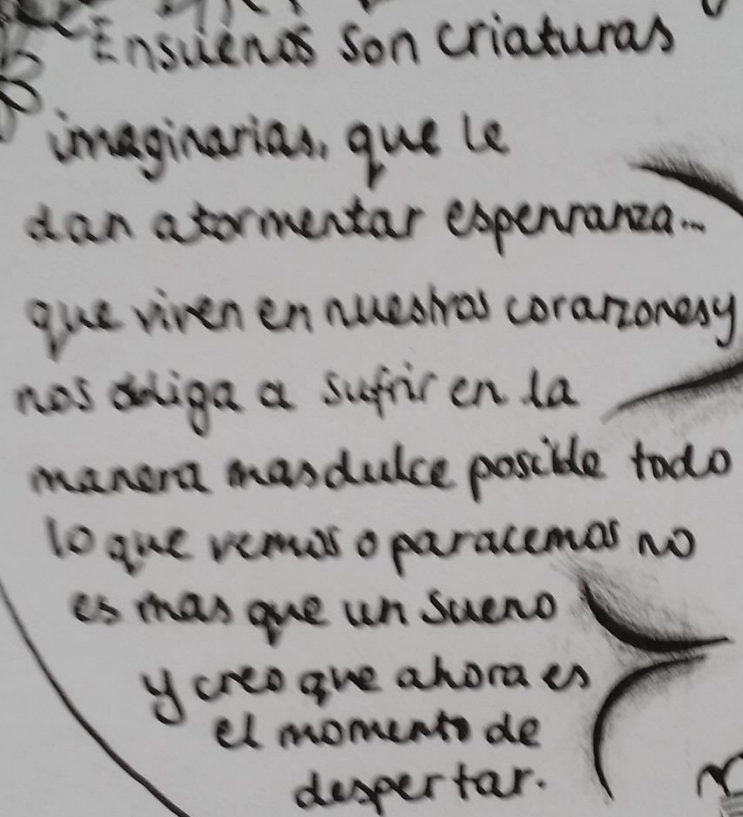 Ensuenos son criaturas
imaginarias, que le
dan atormentar espenranza...
que viven en nuestros corarzones y
nos obliga a sufrir en la
manera mas dulce posible todo
lo que vemos o paracemos no
es mas que un sueno
y creo que ahora es
el momento de
despertar.